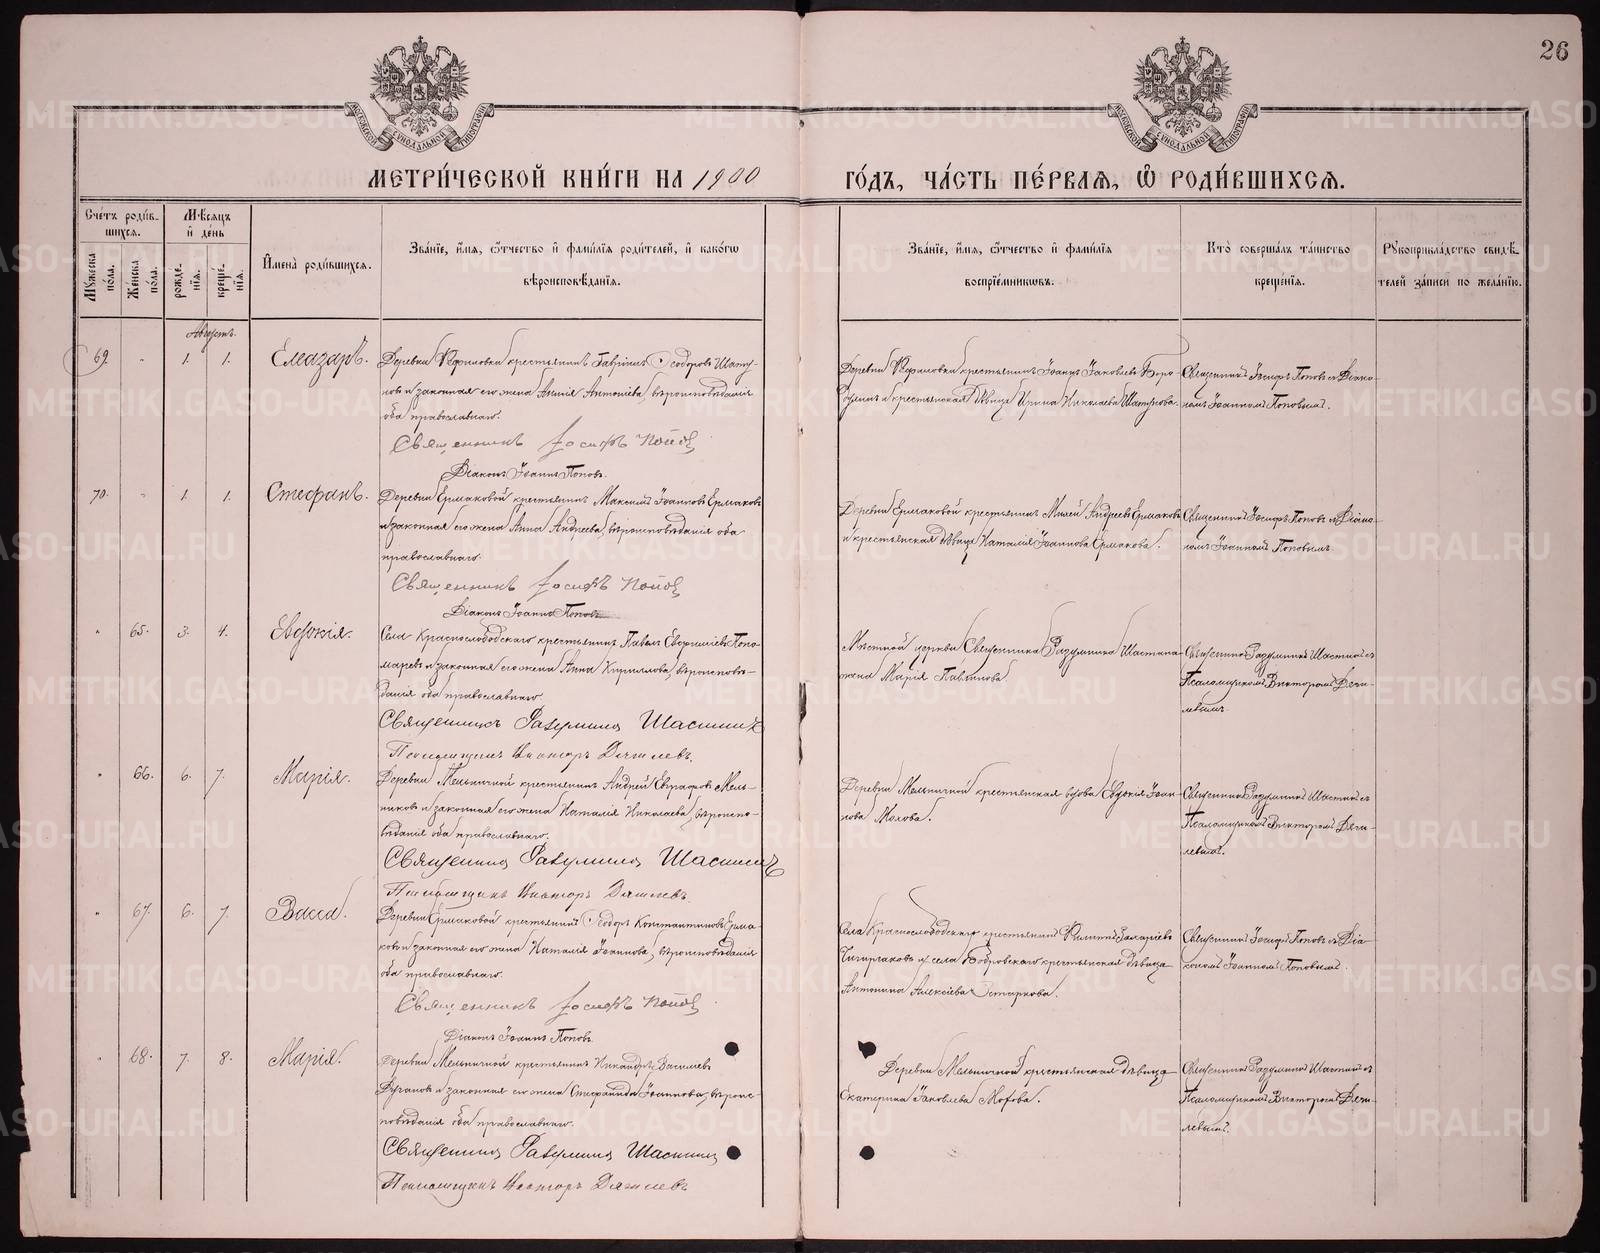 26
МОСКОВСКОЙ СѴНОДАЛЬНОЙ ТИПОГРАФІИ
МОСКОВСКОЙ СѴНОДАЛЬНОЙ ТИПОГРАФІИ
МЕТРИ́ЧЕСКОЙ КНИ́ГИ НА 1900
ГО́ДЪ, ЧА́СТЬ ПЕ́РВАѦ, Ѡ҆ РОДИ́ВШИХСѦ.
Сче́тъ роди́в-
шихсѧ.
Мꙋ́жеска по́ла.
Же́нска по́ла.
Мѣ́сѧцъ и҆ де́нь
рожде́нїѧ.
креще́нїѧ.
И҆мена̀ роди́вшихсѧ.
Зва́нїе, и҆́мѧ, ѻ҆́тчество и҆ фами́лїѧ роди́телей, и҆ како́гѡ
вѣроисповѣ́данїѧ.
Зва́нїе, и҆́мѧ, ѻ҆́тчество и҆ фами́лїѧ
воспрїе́мникѡвъ.
Кто̀ соверша́лъ та́инство
креще́нїѧ.
Рꙋкоприкла́дство свидѣ́-
телей за́писи по жела́нїю.
Августъ.
69. " 1. 1. Елеазаръ.
Деревни крестьянинъ Гавріилъ Ѳеодоровъ Шату-
новъ и законная его жена Анна Антоніева, вѣроисповѣданія
оба православнаго.
Священникъ Іосифъ Поповъ
Діаконъ Іоаннъ Поповъ.
Деревни крестьянинъ Іоаннъ Іаковлевъ Боро-
динъ и крестьянская дѣвица Ирина Николаева Шатунова.
Священникъ Іосифъ Поповъ съ Діако-
номъ Іоанномъ Поповымъ.
70. " 1. 1. Стефанъ.
Деревни Ермаковой крестьянинъ Максимъ Іоанновъ Ермаковъ
и законная его жена Анна Андреева, вѣроисповѣданія оба
православнаго.
Священникъ Іосифъ Поповъ
Діаконъ Іоаннъ Поповъ
Деревни Ермаковой крестьянинъ Андреевъ Ермаковъ
и крестьянская дѣвица Наталія Іоаннова Ермакова.
Священникъ Іосифъ Поповъ съ Діако-
номъ Іоанномъ Поповымъ.
" 65. 3. 4. Евдокія.
Села Краснослободскаго крестьянинъ Павелъ Евфиміевъ Поно-
маревъ и законная его жена Анна Кириллова, вѣроисповѣ-
данія оба православнаго.
Священникъ Разумникъ Шастинъ
Псаломщикъ Викторъ Дягилевъ.
Мѣстной церкви Священника Разумника Шастина
жена Марія Павлинова.
Священникъ Разумникъ Шастинъ съ
Псаломщикомъ Викторомъ Дяги-
левымъ.
" 66. 6. 7. Марія.
Деревни Мельничной крестьянинъ Андрей Евграфовъ Мель-
никовъ и законная его жена Наталія Николаева, вѣроиспо-
вѣданія оба православнаго.
Священникъ Разумникъ Шастинъ
Псаломщикъ Викторъ Дягилевъ.
Деревни Мельничной крестьянская вдова Евдокія Іоан-
нова Мохова.
Священникъ Разумникъ Шастинъ съ
Псаломщикомъ Викторомъ Дяги-
левымъ.
" 67. 6. 7. Васса.
Деревни Ермаковой крестьянинъ Ѳеодоръ Константиновъ Ерма-
ковъ и законная его жена Наталія Іоаннова, вѣроисповѣданія
оба православнаго.
Священникъ Іосифъ Поповъ
Діаконъ Іоаннъ Поповъ.
Села Краснослободскаго крестьянинъ Филиппъ Захаріевъ
и села Бобровскаго крестьянская дѣвица
Антонина Алексіева
Священникъ Іосифъ Поповъ съ Діа-
кономъ Іоанномъ Поповымъ.
" 68. 7. 8. Марія.
Деревни Мельничной крестьянинъ Никандръ Васильевъ
и законная его жена Стефанида Іоаннова, вѣроис-
повѣданія оба православнаго.
Священникъ Разумникъ Шастинъ
Псаломщикъ Викторъ Дягилевъ
Деревни Мельничной крестьянская дѣвица
Екатерина Іаковлева Мохова.
Священникъ Разумникъ Шастинъ съ
Псаломщикомъ Викторомъ Дяги-
левымъ.
METRIKI.GASO-URAL.RU